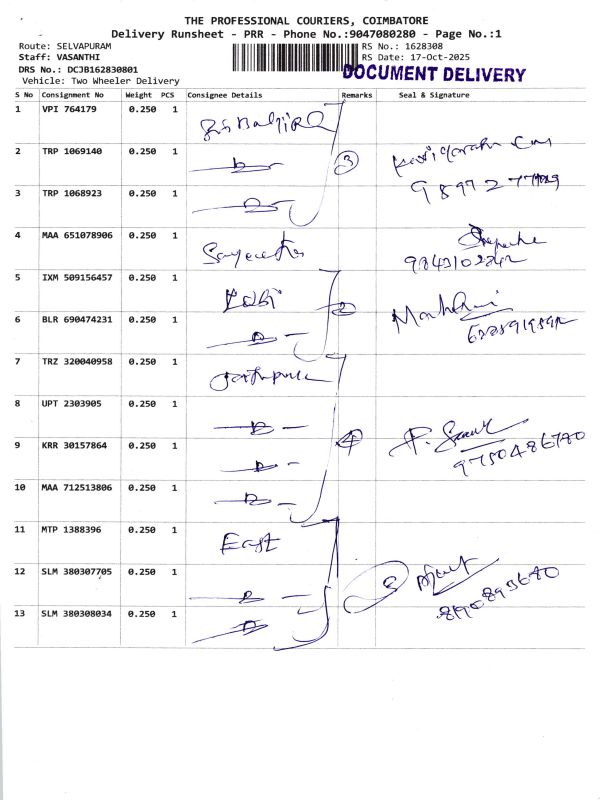 THE PROFESSIONAL COURIERS, COIMBATORE
Delivery Runsheet - PRR - Phone No.:9047080280 - Page No.:1
Route: SELVAPURAM RS No.: 1628308
Staff: VASANTHI RS Date: 17-Oct-2025
DRS No.: DCJB162830801 DOCUMENT DELIVERY
Vehicle: Two Wheeler Delivery
S No Consignment No Weight PCS Consignee Details Remarks Seal & Signature
1 VPI 764179 0.250 1
2 TRP 1069140 0.250 1 3
3 TRP 1068923 0.250 1
4 MAA 651078906 0.250 1
5 IXM 509156457 0.250 1 2
6 BLR 690474231 0.250 1
7 TRZ 320040958 0.250 1
8 UPT 2303905 0.250 1
9 KRR 30157864 0.250 1 4
9750486780
10 MAA 712513806 0.250 1
11 MTP 1388396 0.250 1 East
12 SLM 380307705 0.250 1 3
13 SLM 380308034 0.250 1